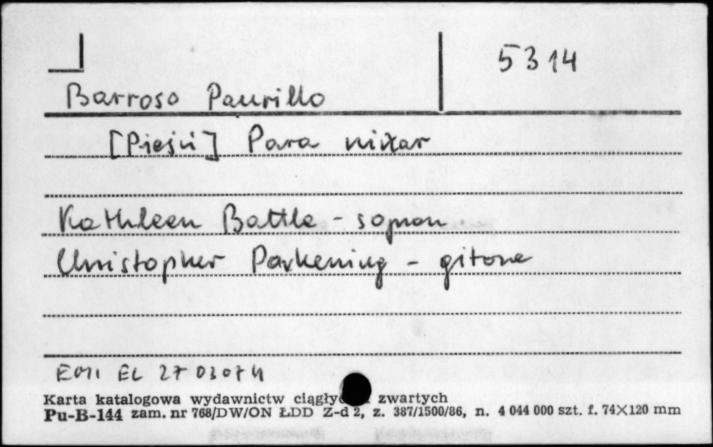 5314
Barroso Paurillo
[Pieśń] Para nixar
Kathleen Battle - sopran
Christopher Parkening - gitara
EMI EL 27 0307 4
Karta katalogowa wydawnictw zwartych
Pu-B-144 zam. nr 768/DW/ON ŁDD Z-d 2, z. 387/1500/86, n. 4 044 000 szt. f. 74×120 mm